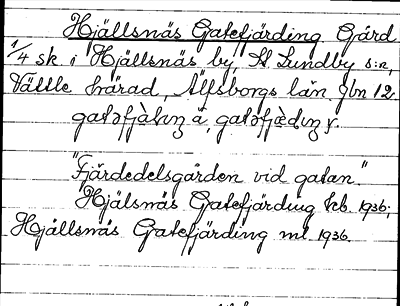 Hjällsnäs Gatefjärding Gård
1/4 sk i Hjällsnäs by, St. Lundby s:n,
Vättle härad, Älfsborgs län. Jbn 12
gatəfjàḷıŋ ä, gatəfjædıŋ y.
"Fjärdedelsgården vid gatan."
Hjälsnäs Gatefjärding kcb. 1936;
Hjällsnäs Gatefjärding ml. 1936.